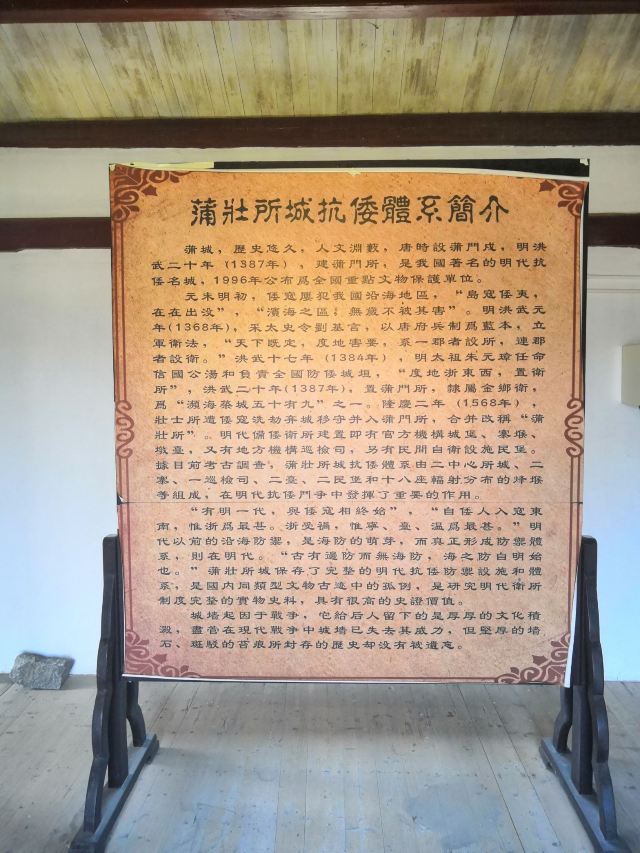 蒲壯所城抗倭體系簡介
蒲城，歷史悠久，人文淵藪，唐時設蒲門戍，明洪
武二十年（1387年），建蒲門所，是我國著名的明代抗
倭名城，1996年公布爲全國重點文物保護單位。
元末明初，倭寇屢犯我國沿海地區，“島寇倭夷，
在在出没”，“濱海之區，無歲不被其害”。明洪武元
年(1368年)，采太史令劉基言，以唐府兵制爲藍本，立
軍衛法，“天下既定，度地害要，系一郡者設所，連郡
者設衛。”洪武十七年（1384年），明太祖朱元璋任命
信國公湯和負責全國防倭城垣，“度地浙東西，置衛
所”，洪武二十年(1387年)，置蒲門所，隸屬金鄉衛，
爲“瀕海築城五十有九”之一。隆慶二年（1568年），
壯士所遭倭寇洗劫弃城移守并入蒲門所，合并改稱“蒲
壯所”。明代備倭衛所建置即有官方機構城堡、寨堠、
墩臺，又有地方機構巡檢司，另有民間自衛設施民堡。
據目前考古調查，蒲壯所城抗倭體系由二中心所城、二
寨、一巡檢司、二臺、二民堡和十八座輻射分布的烽堠
等組成，在明代抗倭鬥争中發揮了重要的作用。
“有明一代，與倭寇相終始”，“自倭人入寇東
南，惟浙爲最甚。浙受禍，惟寧、臺、温爲最甚。”明
代以前的沿海防禦，是海防的萌芽，而真正形成防禦體
系，則在明代。“古有邊防而無海防，海之防自明始
也。”蒲壯所城保存了完整的明代抗倭防禦設施和體
系，是國内同類型文物古迹中的孤例，是研究明代衛所
制度完整的實物史料，具有很高的史證價值。
城墻起因于戰争，它給后人留下的是厚厚的文化積
澱，盡管在現代戰争中城墻已失去其威力，但堅厚的墻
石、斑駁的苔痕所封存的歷史却没有被遺忘。